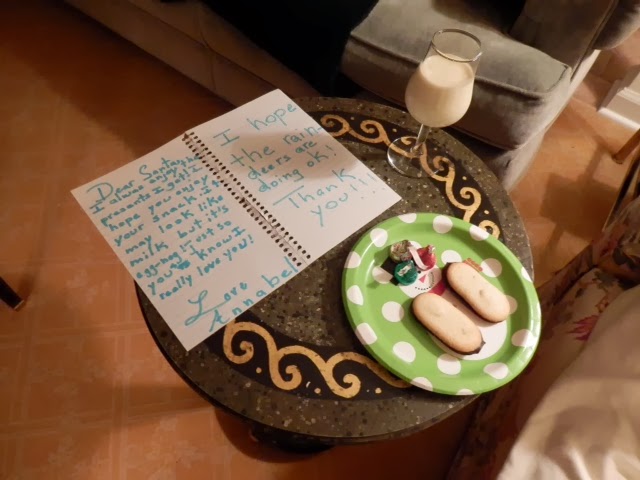 Dear Santa,
I always enjoy the
presents I get! I
hope you enjoy
your snack. It
may look like
milk but it's
egg-nog! Just so
you know I
really love you!
Love
Annabel
I hope
the rain-
deers are
doing ok!
Thank
you!!!